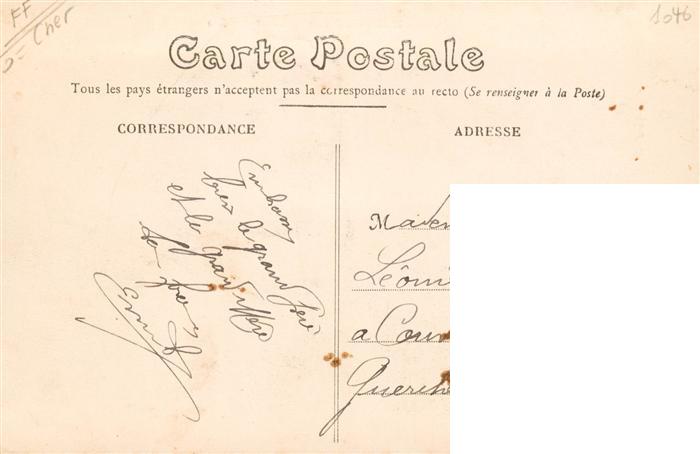 FF
Cher
1046
Carte Postale
Tous les pays étrangers n'acceptent pas la correspondance au recto (Se renseigner à la Poste)
CORRESPONDANCE
ADRESSE
bien le grand Père
et la grand Mère
Ernest
Madem
Léoni
a Cour
Guerche